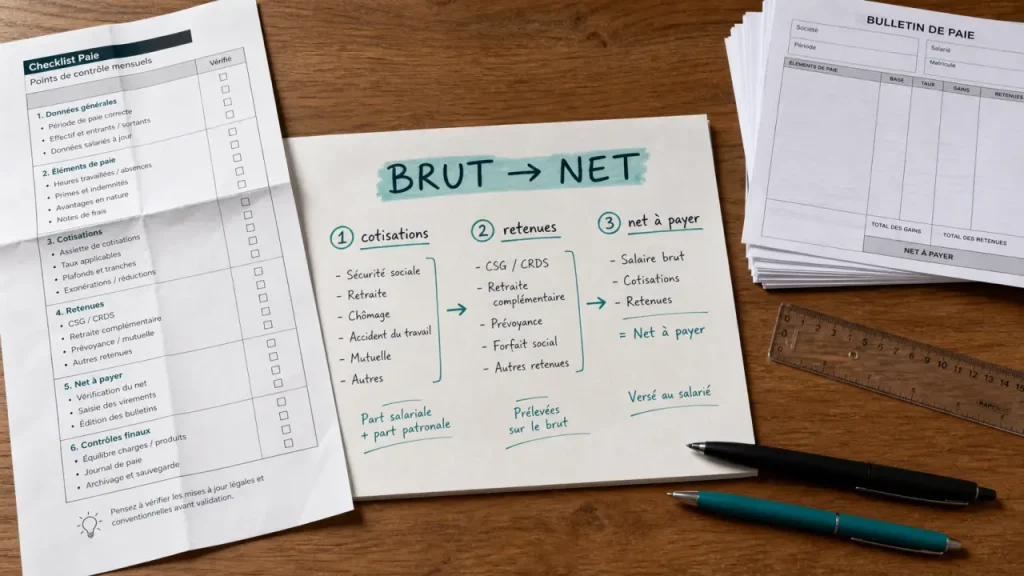 Checklist Paie
Points de contrôle mensuels
Vérifié
1. Données générales
• Période de paie correcte
• Effectif et entrants / sortants
• Données salariés à jour
2. Éléments de paie
• Heures travaillées / absences
• Primes et indemnités
• Avantages en nature
• Notes de frais
3. Cotisations
• Assiette de cotisations
• Taux applicables
• Plafonds et tranches
• Exonérations / réductions
4. Retenues
• CSG / CRDS
• Retraite complémentaire
• Prévoyance / mutuelle
• Autres retenues
5. Net à payer
• Vérification du net
• Saisie des virements
• Édition des bulletins
6. Contrôles finaux
• Équilibre charges / produits
• Journal de paie
• Archivage et sauvegarde
Pensez à vérifier les mises à jour légales et
conventionnelles avant validation.
BRUT → NET
1 cotisations
- Sécurité sociale
- Retraite
- Chômage
- Accident du travail
- Mutuelle
- Autres
Part salariale
+ part patronale
2 retenues
- CSG / CRDS
- Retraite
complémentaire
- Prévoyance
- Forfait social
- Autres retenues
Prélevées
sur le brut
3 net à payer
- Salaire brut
- Cotisations
- Retenues
= Net à payer
Versé au salarié
BULLETIN DE PAIE
Société
Période
Salarié
Matricule
ÉLÉMENTS DE PAIE BASE TAUX GAINS RETENUES
TOTAL DES GAINS TOTAL DES RETENUES
NET À PAYER
0 1 2 3 4 5 6 7 8 9 10 11 12 13 14 15